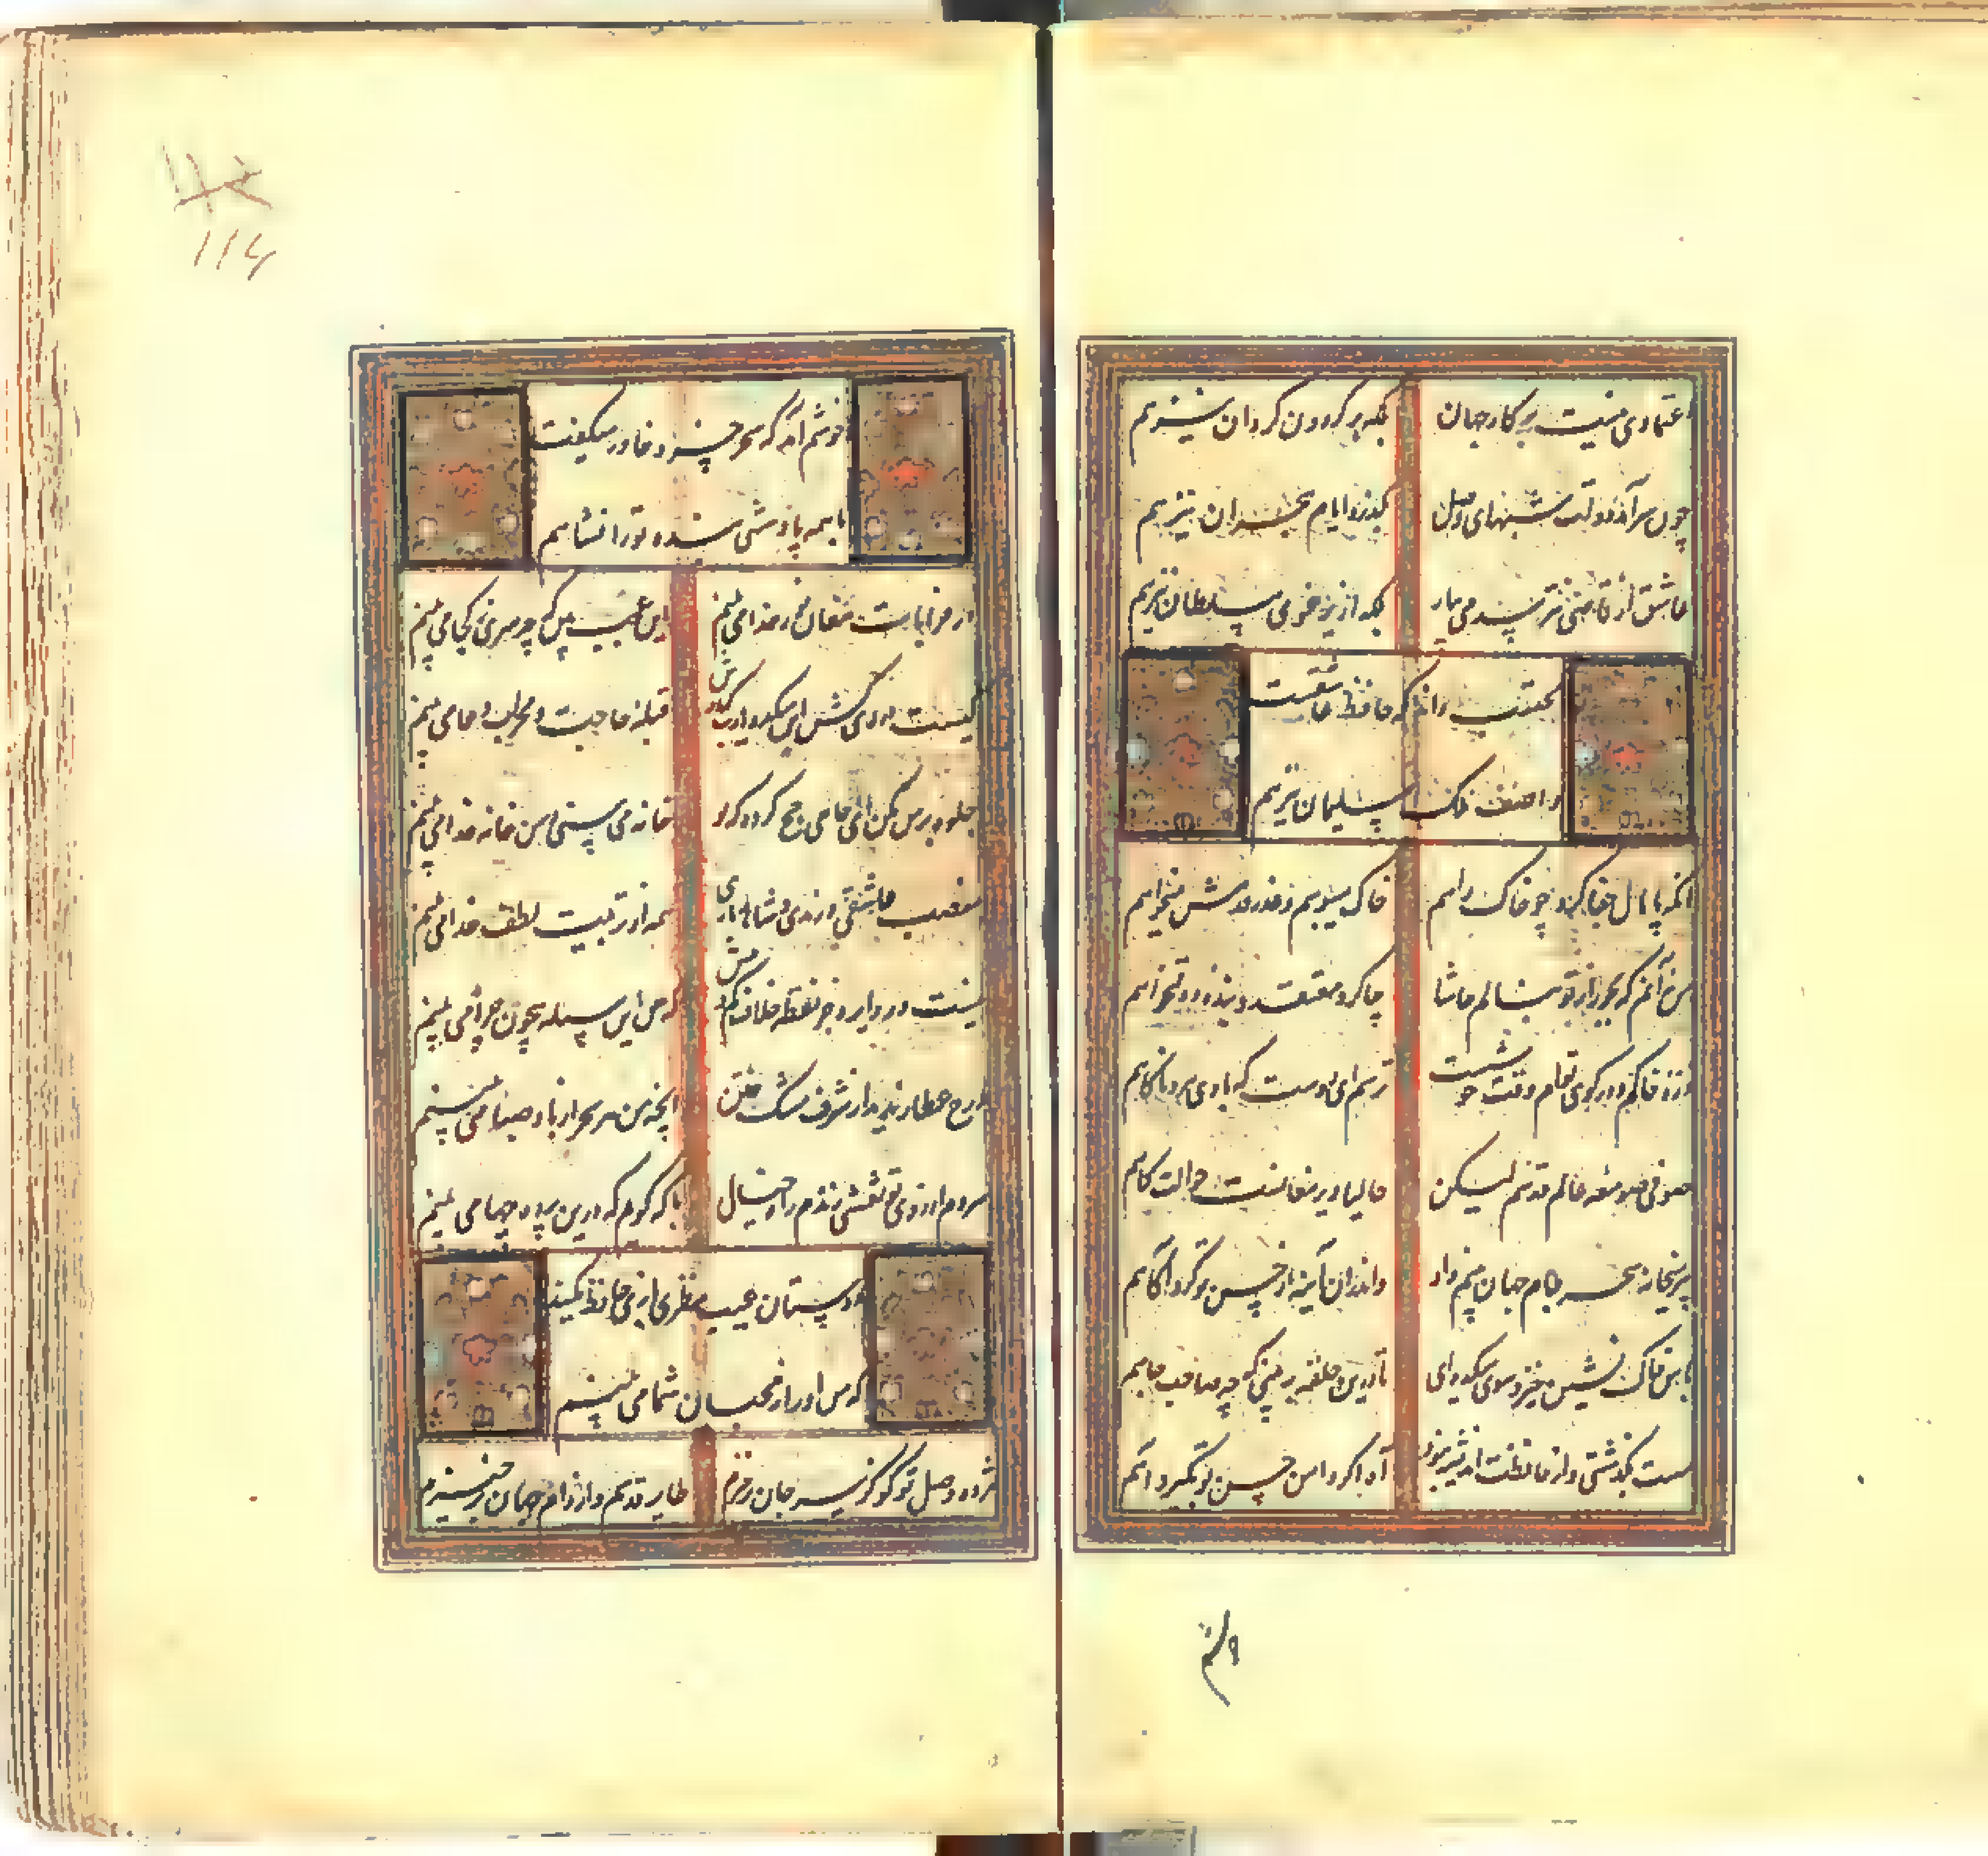 اعتمادی نیست بر کار جهان بلکه بر گردون گردان نیز هم
چون سرآمد دولت شبهای وصل بگذرد ایام هجران نیز هم
عاشق از قاضی نترسد می بیار بلکه از یرغوی سلطان نیز هم
محتسب داند که حافظ عاشقست
واصف ملک سلیمان نیز هم
آنکه پامال جفا کرد چو خاک راهم خاک میبوسم و عذر قدمش میخواهم
من نه آنم که بجور از تو بنالم حاشا چاکر و معتقد و بنده دولتخواهم
ذره خاکم و در کوی توام وقت خوشست ترسم ای دوست که بادی ببرد ناگاهم
صوفی صومعه عالم قدسم لیکن حالیا دیر مغانست حوالت گاهم
پیر میخانه سحر جام جهان بینم داد واندران آینه از حسن تو کرد آگاهم
با من خاک نشین خیز و سوی میکده ای تا درین حلقه ببینی که چه صاحب جاهم
مست بگذشتی و از حافظت اندیشه نبود آه اگر دامن حسن تو بگیرد آهم
خوشم
خوشم آمد که سحر خسرو خاور میگفت
با همه پادشهی بنده تورانشاهم
در خرابات مغان نور خدا می بینم این عجب بین که چه نوری ز کجا می بینم
کیست دردی کش این میکده یارب که درش قبله حاجت و محراب دعا می بینم
جلوه بر من مکن ای حاجی حج که تو خانه می بینی و من خانه خدا می بینم
منصب عاشقی و رندی و شاهد بازی همه از تربیت لطف خدا می بینم
نیست در دایره جز نقطه خلاف از کم و بیش که من این مسئله بیچون و چرا می بینم
نیست از مشک ختن آنچه من هر سحر از باد صبا می بینم
هردم از روی تو نقشی زندم راه خیال با که گویم که درین پرده چها می بینم
دوستان عیب نظربازی حافظ مکنید
که من او را ز محبان شما می بینم
مژده وصل تو کو کز سر جان برخیزم طایر قدسم و از دام جهان برخیزم
۱۱۴